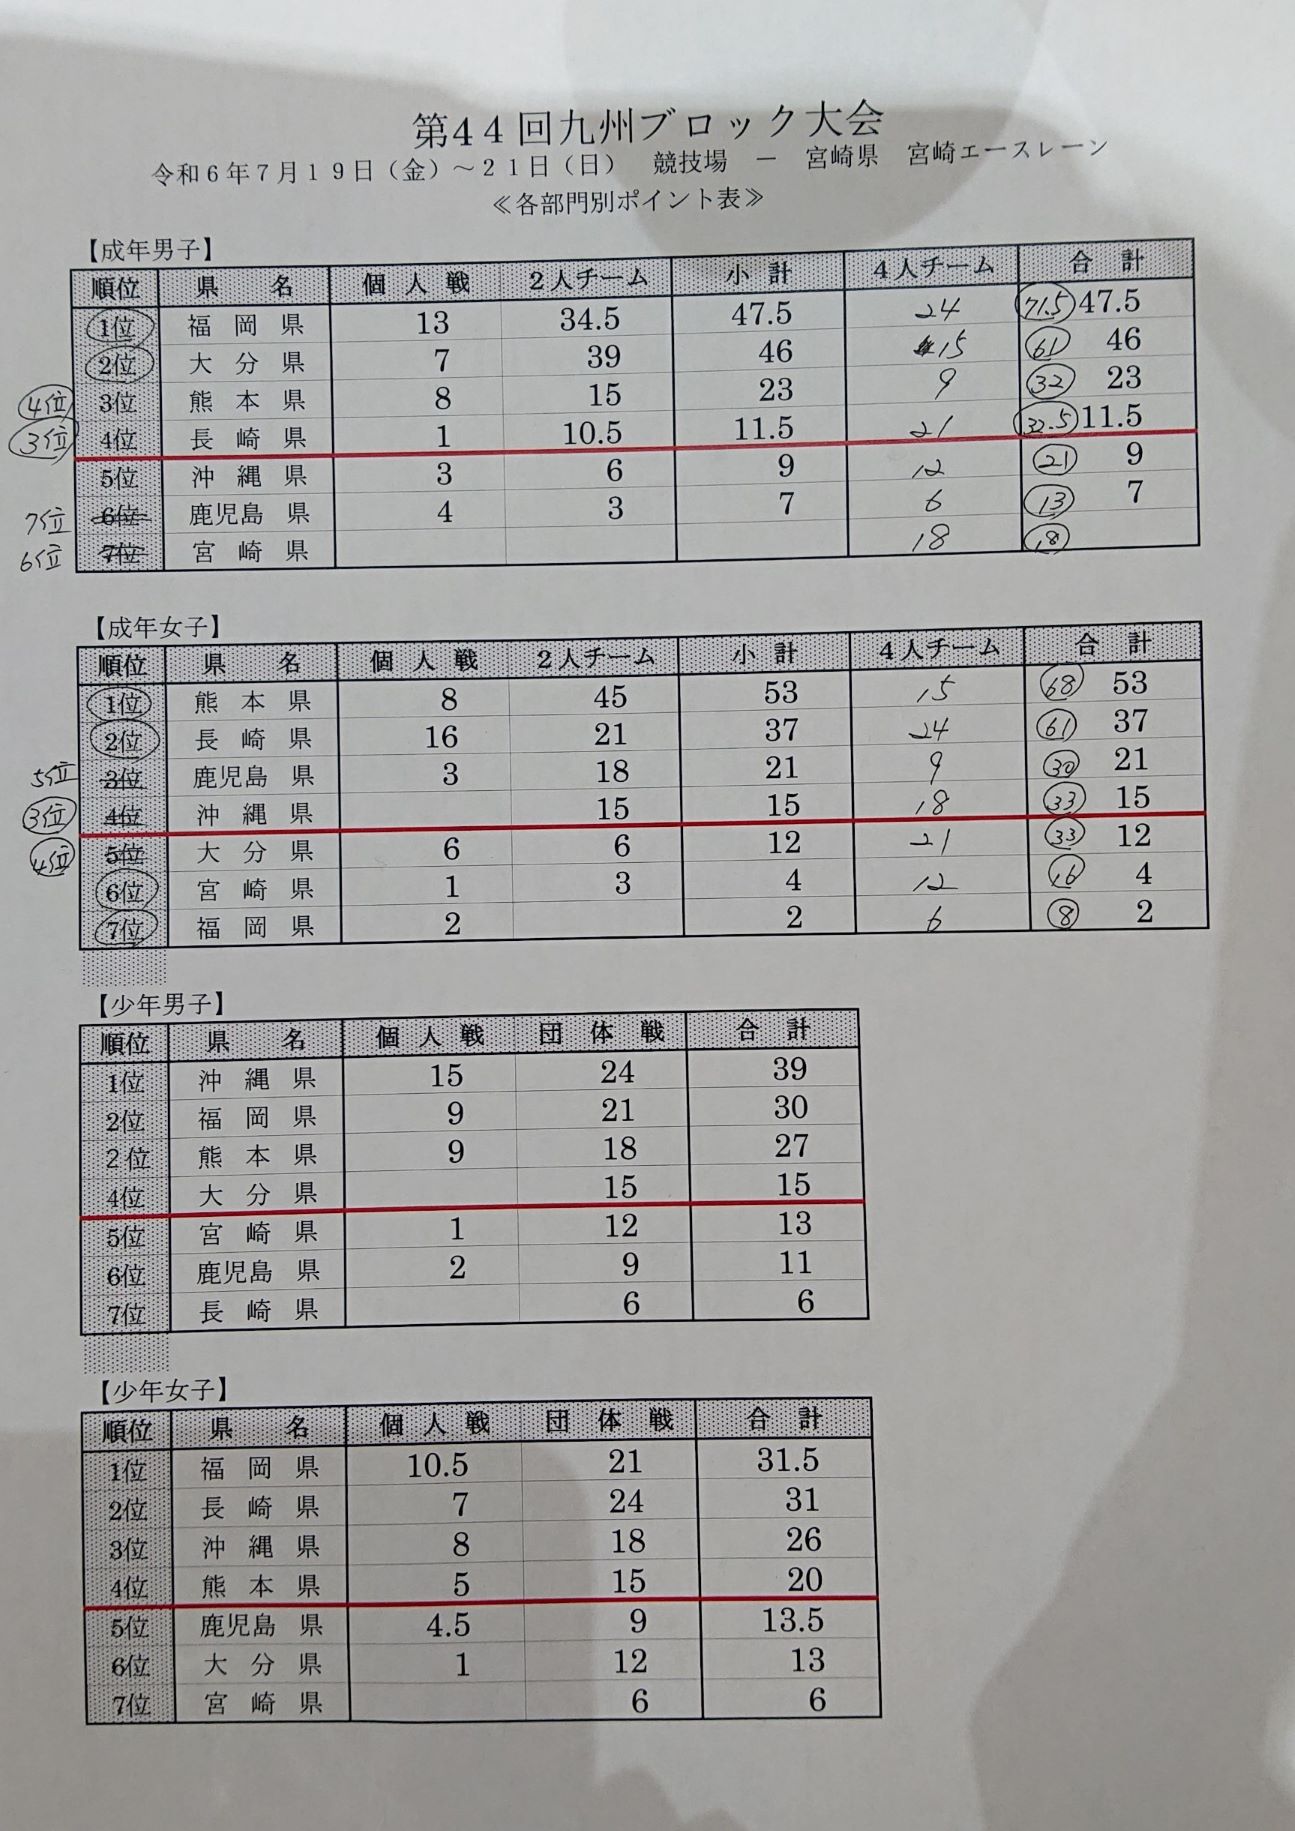 第44回九州ブロック大会
令和6年7月19日（金）～21日（日）　競技場　－　宮崎県　宮崎エースレーン
≪各部門別ポイント表≫
【成年男子】
順位 県名 個人戦 2人チーム 小計 4人チーム 合計
1位 福岡県 13 34.5 47.5 24 71.5 47.5
2位 大分県 7 39 46 15 61 46
4位 3位 熊本県 8 15 23 9 32 23
3位 4位 長崎県 1 10.5 11.5 21 32.5 11.5
5位 沖縄県 3 6 9 12 21 9
7位 6位 鹿児島県 4 3 7 6 13 7
6位 7位 宮崎県 18 18
【成年女子】
順位 県名 個人戦 2人チーム 小計 4人チーム 合計
1位 熊本県 8 45 53 15 68 53
2位 長崎県 16 21 37 24 61 37
5位 3位 鹿児島県 3 18 21 9 30 21
3位 4位 沖縄県 15 15 18 33 15
4位 5位 大分県 6 6 12 21 33 12
6位 宮崎県 1 3 4 12 16 4
7位 福岡県 2 2 6 8 2
【少年男子】
順位 県名 個人戦 団体戦 合計
1位 沖縄県 15 24 39
2位 福岡県 9 21 30
2位 熊本県 9 18 27
4位 大分県 15 15
5位 宮崎県 1 12 13
6位 鹿児島県 2 9 11
7位 長崎県 6 6
【少年女子】
順位 県名 個人戦 団体戦 合計
1位 福岡県 10.5 21 31.5
2位 長崎県 7 24 31
3位 沖縄県 8 18 26
4位 熊本県 5 15 20
5位 鹿児島県 4.5 9 13.5
6位 大分県 1 12 13
7位 宮崎県 6 6